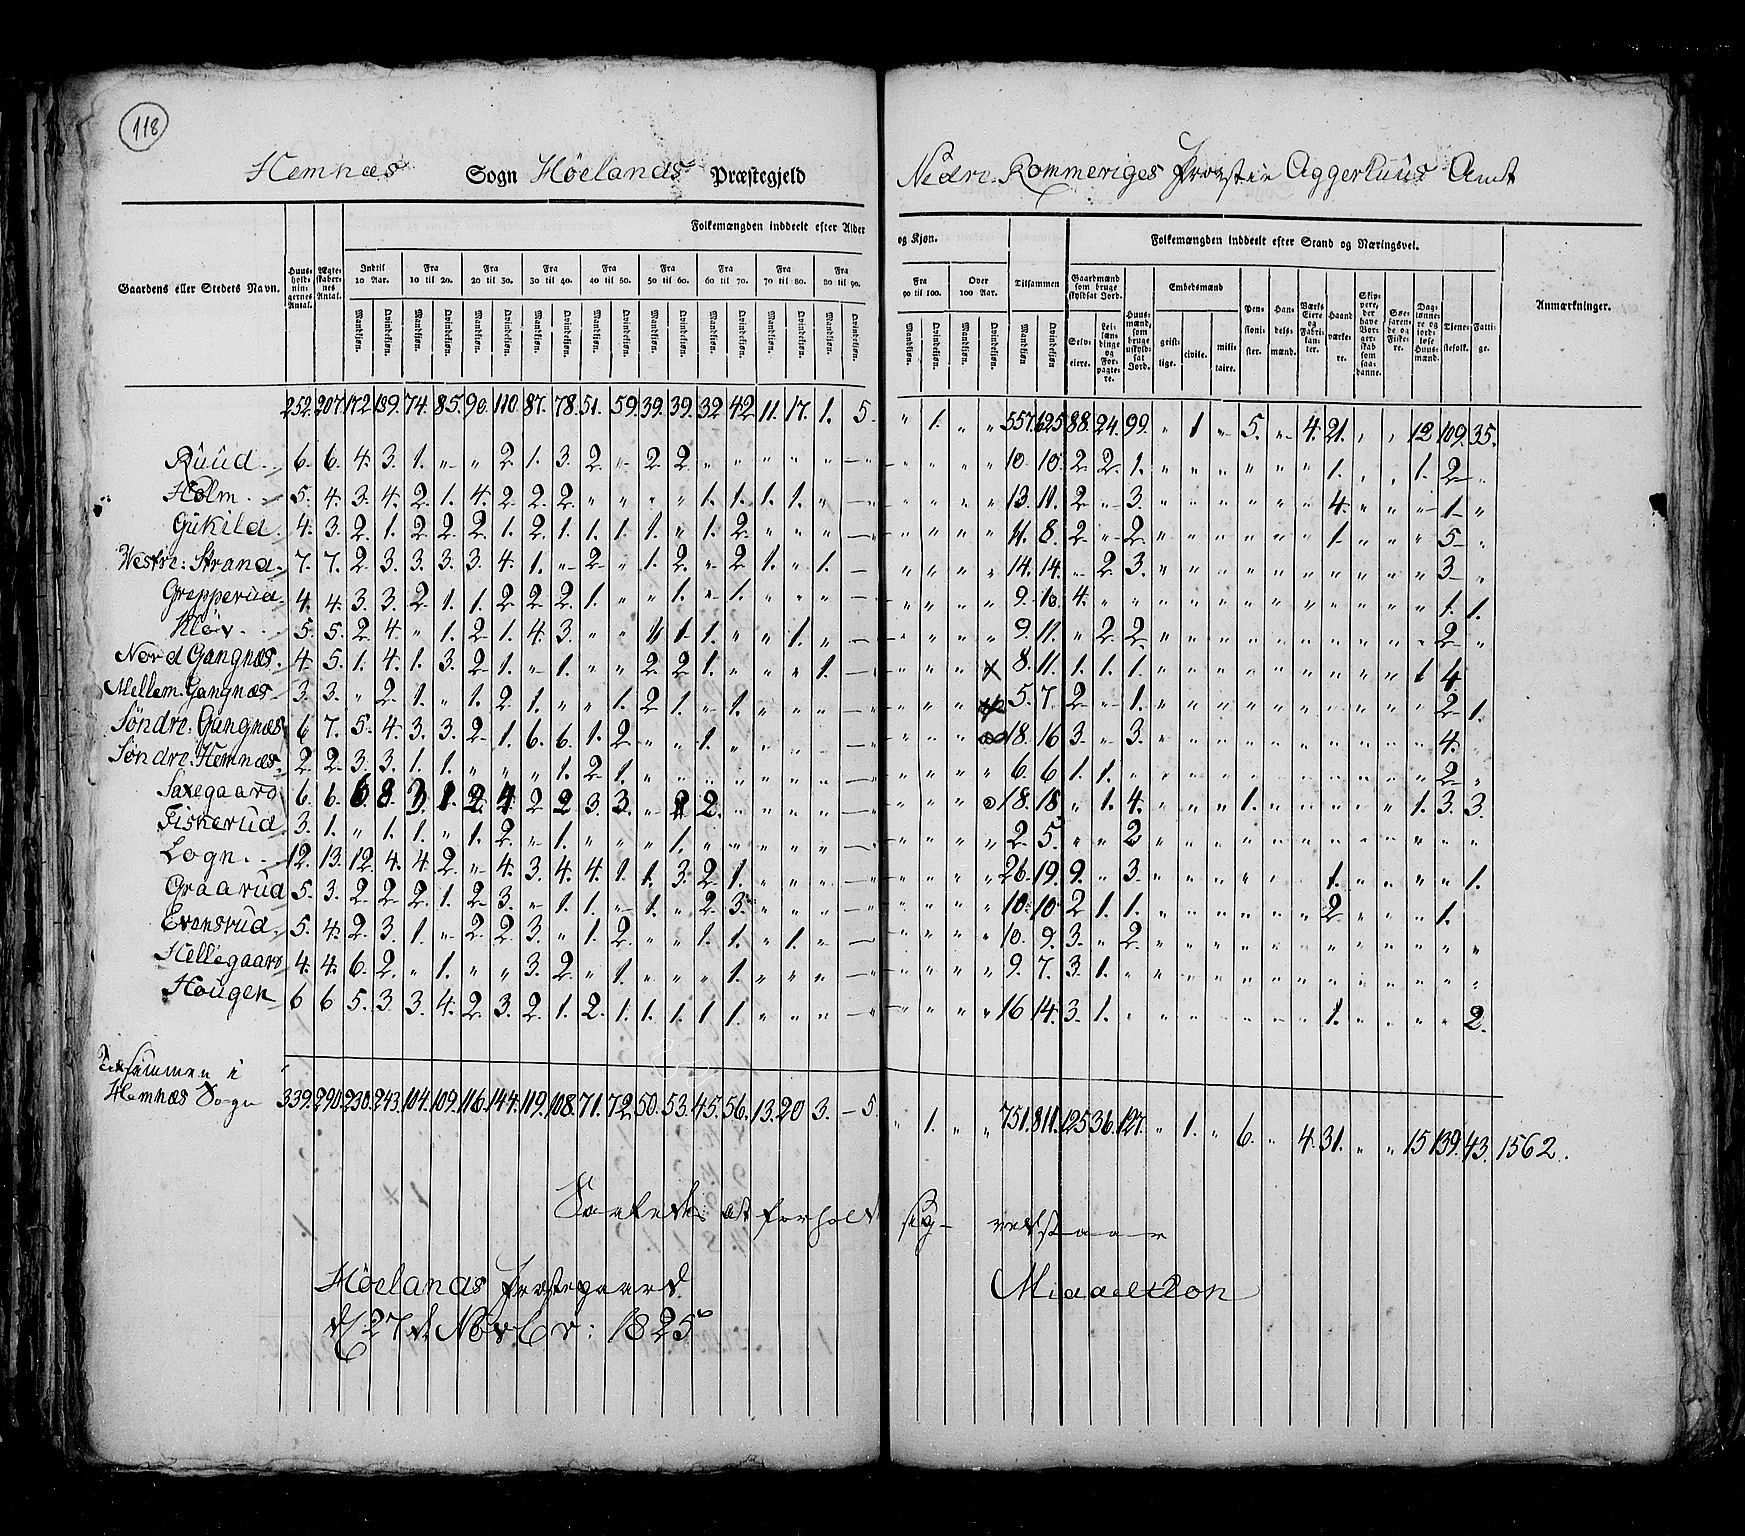 118
Hemnæs Sogn Høelands Præstegjeld Nedre Rommeriges Provstie Aggerhuus Amt
Folkemængden inddeelt efter Alder og Kjøn. Folkemængden inddeelt efter Stand og Næringsvei.
Gaardens eller Stedets Navn. Huusholdningernes Antal. Ægteskabernes Antal. Indtil 10 Aar. Fra 10 til 20. Fra 20 til 30. Fra 30 til 40. Fra 40 til 50. Fra 50 til 60. Fra 60 til 70. Fra 70 til 80. Fra 80 til 90. Fra 90 til 100. Over 100 Aar. Tilsammen Gaardmænd som bruge skyldsat Jord. Huusmænd, som bruge uskyldsat Jord. Embedsmænd Pensionister. Handelsmænd. Værks Eiere og Fabrikanter. Haandværkere. Skippere, der have Borgerskab som saadanne. Søefarende og Fiskere. Daglønnere og jordløse Huusmænd. Tjenestefolk. Fattige. Anmærkninger.
Mandkiøn. Qvindekiøn. Mandkiøn. Qvindekiøn. Mandkiøn. Qvindekiøn. Mandkiøn. Qvindekiøn. Mandkiøn. Qvindekiøn. Mandkiøn. Qvindekiøn. Mandkiøn. Qvindekiøn. Mandkiøn. Qvindekiøn. Mandkiøn. Qvindekiøn. Mandkiøn. Qvindekiøn. Mandkiøn. Qvindekiøn. Mandkiøn Qvindekiøn. Selveiere. Leilændinge og Forpagtere. geistlige. civile. militaire.
252. 207. 172. 199. 74. 85. 90. 110. 87. 78. 51. 59. 39. 39. 32 42 11. 17. 1. 5. " 1. " " 557. 625 88. 24. 99. " 1 " 5. " 4. 21. " " 12 109. 35.
Ruud 6. 6. 4. 3. 1. " " 2. 1. 3. 2. " 2 2. " " " " " " " " " " 10. 10. 2 2. 1. " " " " " " 1. " " 1. 2 "
Holm 5. 4. 3. 4. 2. 1. 4. 2. 2. 2. " " " " 1. 1. 1. 1. " " " " " " 13. 11. 2 " 3. " " " " " " 4. " " " 1 "
Gukild 4. 3. 2. 1. 2. 2. 2. 1. 2. 1. 1. 1. 1. " 1. 2. " " " " " " " " 11. 8. 2 " 2. " " " " " " 1 " " " 5 "
Westre: Strand 7. 7. 2. 3. 3. 3. 3. 4. 1. " 2 " 1. 2. " 2 1. " 1. " " " " " 14. 14. " 2 3. " " " " " " " " " " 3 "
Grepperud 4. 4. 3. 3. 2. 1. 1. 2. 2. 2. 1. " " 1. " 1. " " " " " " " 9. 10. 4. " " " " " " " " " " " " 1. 1.
Kløv 5. 5. 2. 4. " 1. 2. 1. 4. 3. " " 1. 1. " " 1. " " " " " " 9. 11. " 2 2. " " " " " " " " " " 2 "
Nord Gangnæs. 4. 5. 1. 4. 1. 3. 2. 1. " 1. " " 2 2 1. " " " 1. " " " " 8. 11. 1. 1. 1. " " " " " " " " " 1 4
Mellem: Gangnæs 3. 3. " 2. 1. " 1. 2. 1. " " 1. 2 1. " 1. " " " " " " " 5. 7. 2 " 1. " " " " " " " " " " 2 1.
Søndre: Gangnæs 6 7. 5. 4. 3. 3. 2. 1. 6. 6. 1. 2 " " 1. " " " " " " " " 18. 16 3. " 3. " " " " " " " " " " 4. "
Søndre: Hemnæs 2. 2. 3. 3. 1. 1. " " " 1. 2. 1. " " " " " " " " " " " " 6. 6 1. 1. " " " " " " " " " " " 2 "
Saxegaard 6. 6. 6 8. 3 1. 2. 4 2 2 3. 3. " 2 2. " " " " " " " " 18. 18. " 1. 4. " " " 1. " " " " " 1. 3. 3.
Fiskerud 3. 1. " 1. 1. " 1. 2. " 1. " " " 1. " " " " " " " " " " 2. 5. " " 2 " " " " " " " " " " " "
Logn 12. 13. 12. 4. 4. 2. " 4. 3. 4. 4. 1. 1. 3. 2. 1. " " " " " " " " 26. 19. 9. " 3. " " " " " " 1. " " " " 1.
Graarud 5. 3. 2. 2. 2. 1. 2. 3. " 1. 1. " 1. " 2. 3. " " " " " " " " 10. 10 2 1. 1. " " " " " " 2 " " " 1.
Evensrud 5. 4. 2. 3. 1. " 2 2. 3. " 1. 2. " " 1. 1. " 1. " " " " " " 10. 9. 3. " 2 " " " " " " " " " " " "
Hellegaard 4. 4. 6. 2. " 1. " " 3. 2. " 1. " " " 1. " " " " " " " " 9. 7. 3. 1. " " " " " " " " " " " " "
Hougen 6 6 5. 3. 3. 4. 2. 3. 2. 1. 2. 1. 1. 1. 1 1. " " " " " " " " 16 14. 3. 1. " " " " " " " 1. " " " " 2.
Tilsammen i
Hemnæs Sogn 339. 290. 230. 243. 104. 109. 116. 144. 119. 108. 71. 72. 50. 53. 45. 56. 13. 20 3. 5 " 1. " " 751. 811. 125 36. 127. " 1. " 6. " 4. 31. " " 15 139. 43. 1562.
Saaledes at forholde sig
Høelands Præstegaard
d: 27de Novbr: 1825